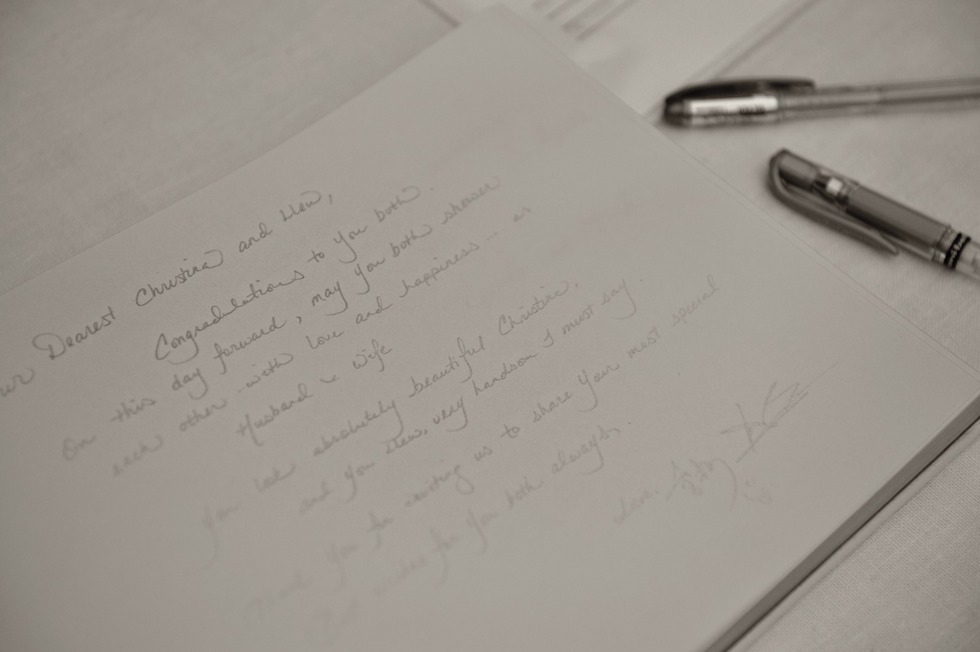 Our Dearest Christina and Hew,
Congradulations to you both.
On this day forward, may you both shower
each other with love and happiness... as
Husband & Wife
You look absolutely beautiful Christina,
and you Hew, very handsom I must say.
Thank you for inviting us to share your most special
Best wishes for you both always.
Love,